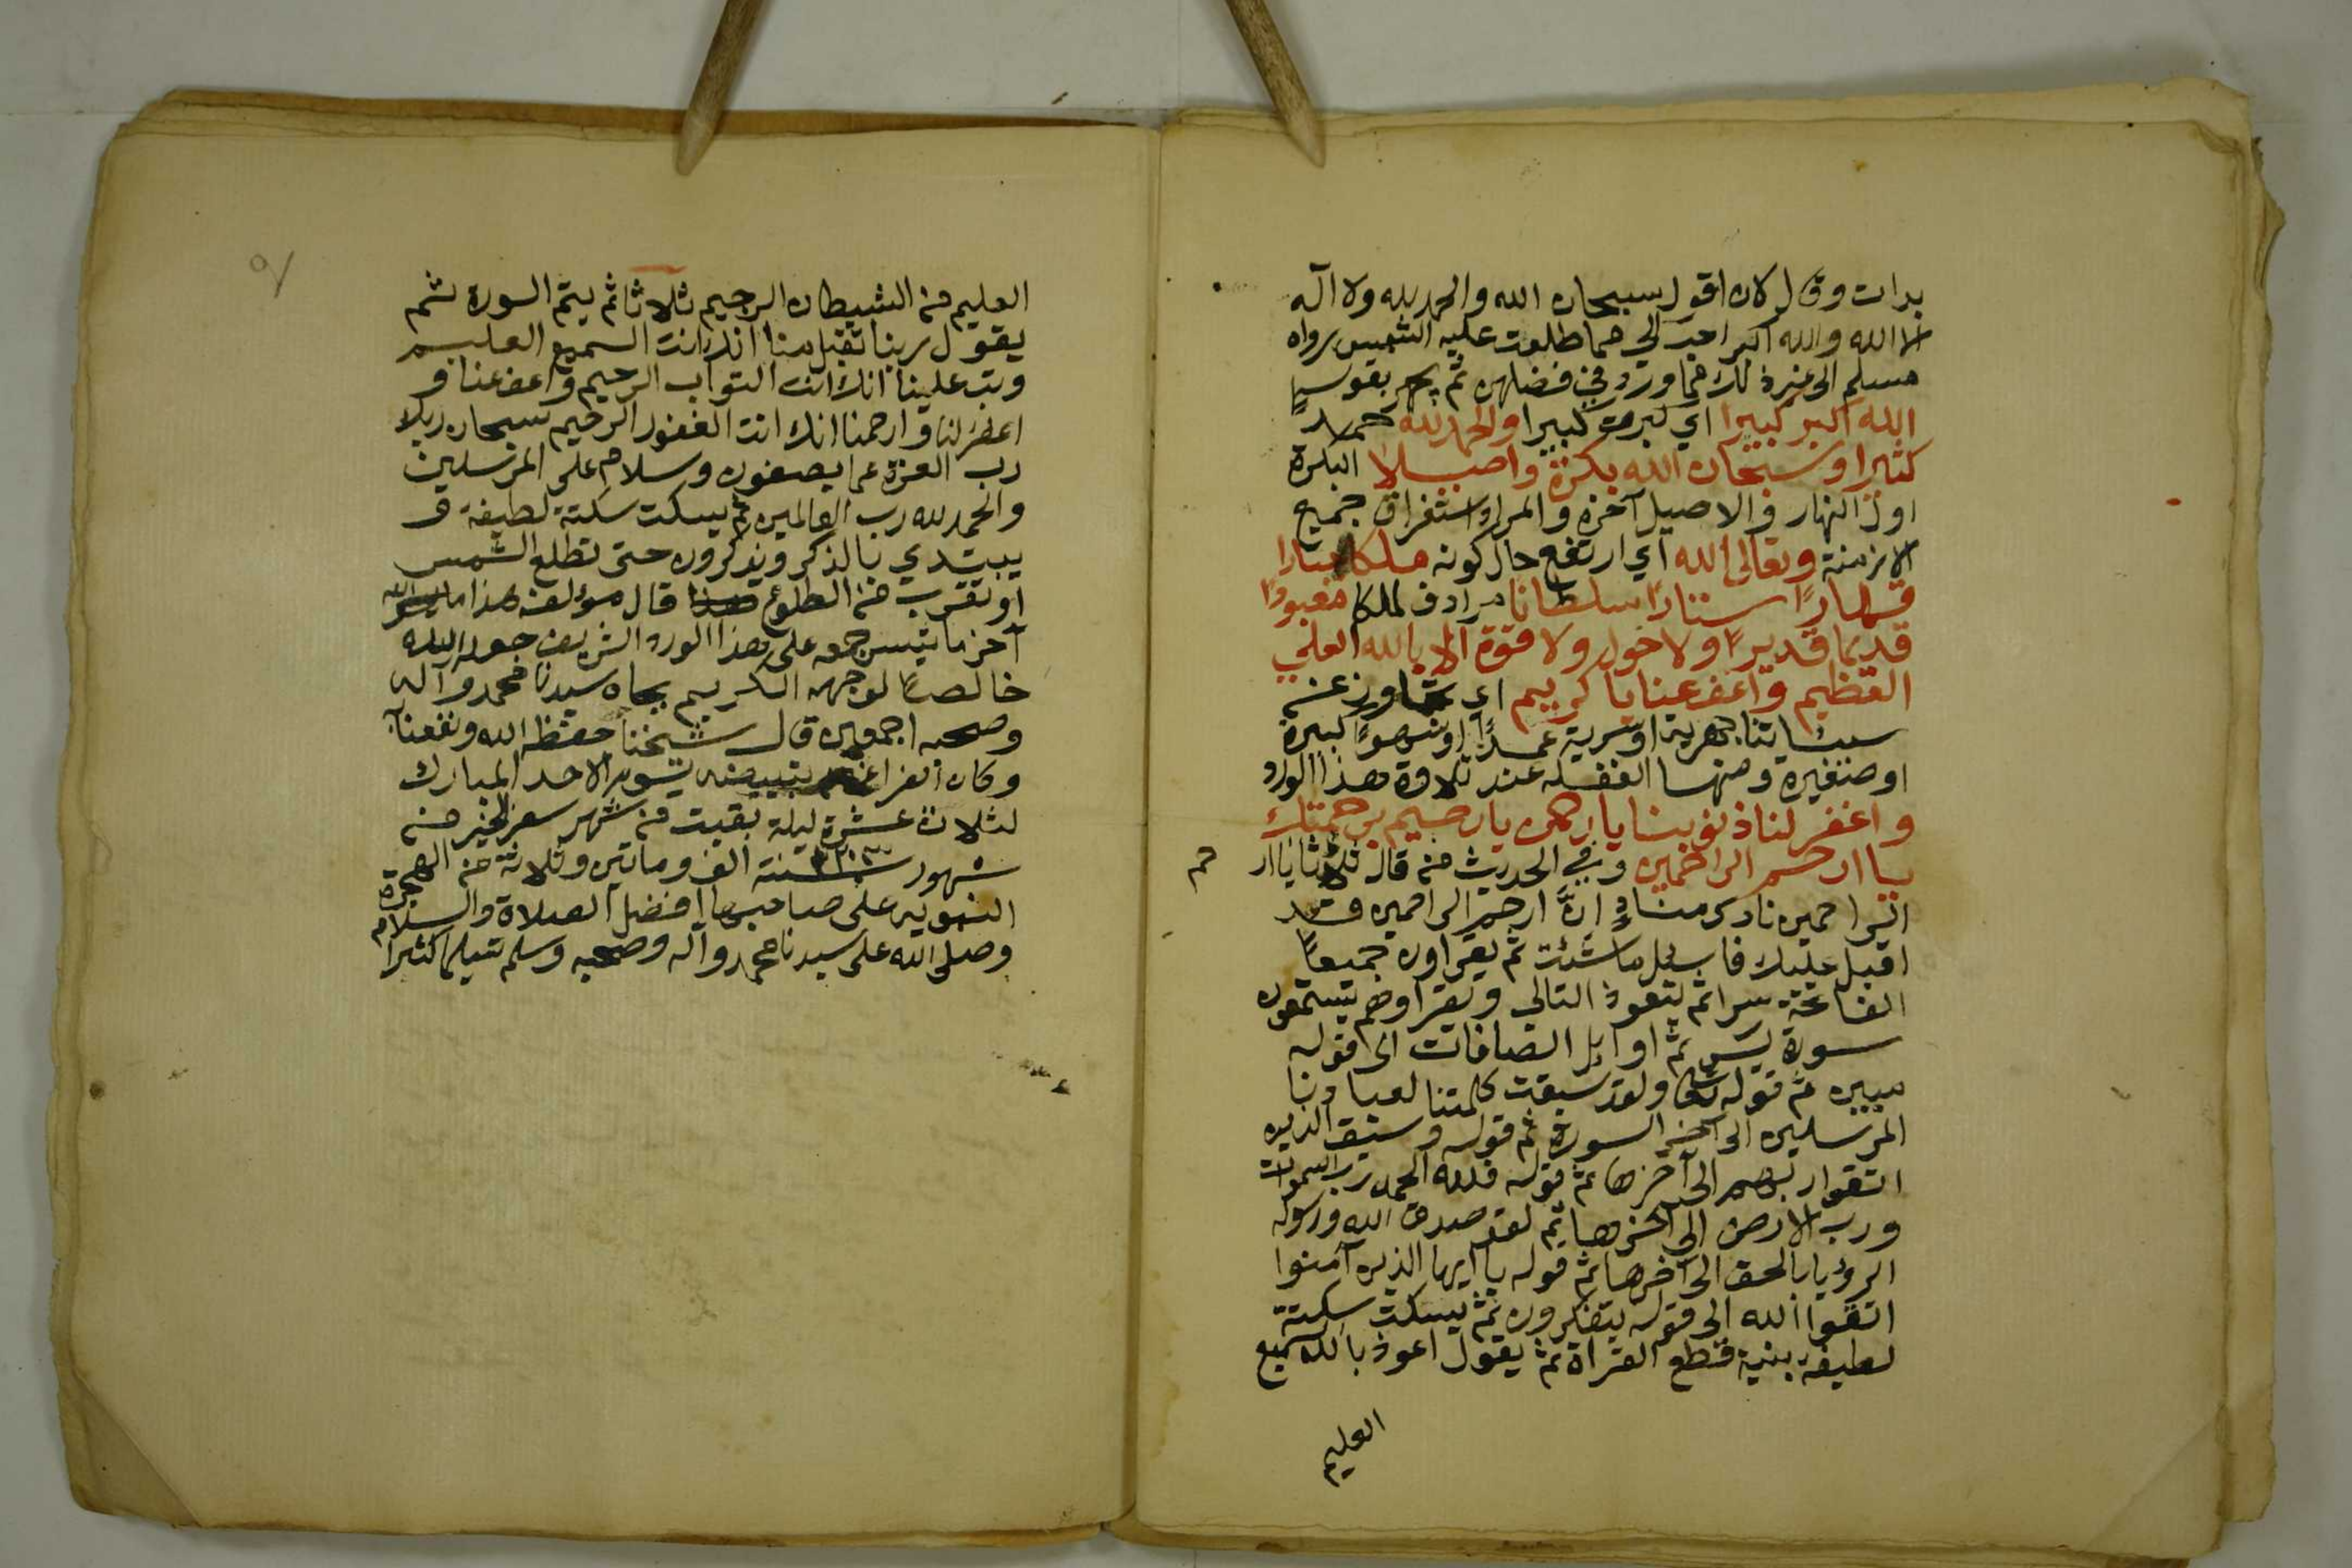 بدات وقال لان اقول سبحان الله والحمد لله ولا اله
الا الله والله اكبر احب الى مما طلعت عليه الشمس رواه
مسلم الى غير ذلك مما ورد في فضلهن ثم يجهر بقوله
الله اكبر كبيرا اي كبرت كبيرا والحمد لله حمدا
كثيرا وسبحان الله بكرة واصيلا البكرة
اول النهار والاصيل آخره والمراد استغراق جميع
الازمنة وتعالى الله اي ارتفع حال كونه ملكا جبارا
قهارا ستارا سلطانا مرادف لملكا معبودا
قديما قديرا ولا حول ولا قوة الا بالله العلي
العظيم واعف عنا يا كريم اي تجاوز عن
سيئاتنا جهرية او سرية عمدا او سهوا كبيرة
او صغيرة ومنها الغفلة عند تلاوة هذا الورد
واغفر لنا ذنوبنا يا رحمن يا رحيم برحمتك
يا ارحم الراحمين وفي الحديث من قال ثلاثا يا ار
حم
الراحمين نادى مناد ان ارحم الراحمين قد
اقبل عليك فاسال ما شئت ثم يقراون جميعا
الفاتحة سرا ثم يتعوذ التالي ويقرا وهم يستمعون
سورة يس ثم اوايل الصافات الى قوله
مبين ثم قوله تعا ولقد سبقت كلمتنا لعبادنا
المرسلين الى آخر السورة ثم قوله وسيق الذين
اتقوا ربهم الى آخرها ثم قوله فلله الحمد رب السموات
ورب الارض الى آخرها ثم لقد صدق الله ورسوله
الرؤيا بالحق الى آخرها ثم قوله يا ايها الذين آمنوا
اتقوا الله الى قوله يتفكرون ثم يسكت سكتة
لطيفة بنية قطع القراة ثم يقول اعوذ بالله السميع
العليم
العليم من الشيطان الرجيم ثلاثا ثم يتم السورة ثم
يقول ربنا تقبل منا انك انت السميع العليم
وتب علينا انك انت التواب الرحيم واعف عنا و
اغفر لنا وارحمنا انك انت الغفور الرحيم سبحان ربك
رب العزة عما يصفون وسلام على المرسلين
والحمد لله رب العالمين ثم يسكت سكتة لطيفة و
يبتدي بالذكر ويذكرون حتى تطلع الشمس
او تقرب من الطلوع قال مؤلفه هذا ما يسر الله
آخر ما تيسر جمعه على هذا الورد الشريف جعله الله
خالصا لوجهه الكريم بجاه سيدنا محمد وآله
وصحبه اجمعين قال شيخنا حفظه الله ونفعنا به
وكان الفراغ من تبييضه يوم الاحد المبارك
لثلاث عشرة ليلة بقيت من شهر سفر الخير من
شهور سنة ١٢٠٣ الف وماتين وثلاثة من الهجرة
النبوية على صاحبها افضل الصلاة والسلام
وصلى الله على سيدنا محمد وآله وصحبه وسلم تسليما كثيرا